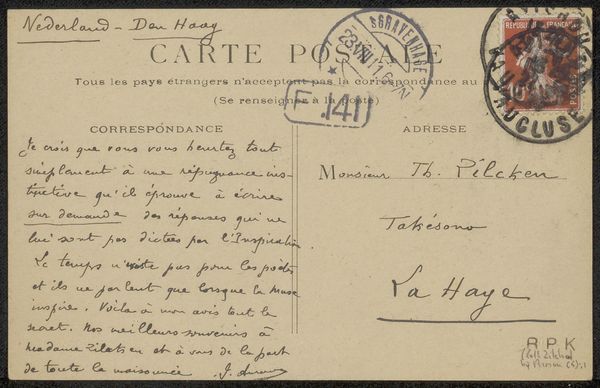 Nederland - Den Haag
CARTE POSTALE
Tous les pays étrangers n'acceptent pas la correspondance au
(Se renseigner à la poste)
'SGRAVENHAGE
F 141
AVIGNON
VAUCLUSE
REPUBLIQUE FRANÇAISE
10
POSTES
CORRESPONDANCE
ADRESSE
Je crois que vous vous heurtez tout
simplement à une répugnance ins-
tinctive qu'il éprouve à écrire
sur demande des réponses qui ne
lui sont pas dictées par l'Inspiration
Le temps n'existe pas pour les poètes
et ils ne parlent que lorsque la muse
inspire. Voilà à mon avis tout le
secret. Nos meilleurs souvenirs à
Madame Zilcken et à vous de la part
de toute la maisonnée J.
Monsieur Th. Zilcken
Takésono
La Haye
R P K